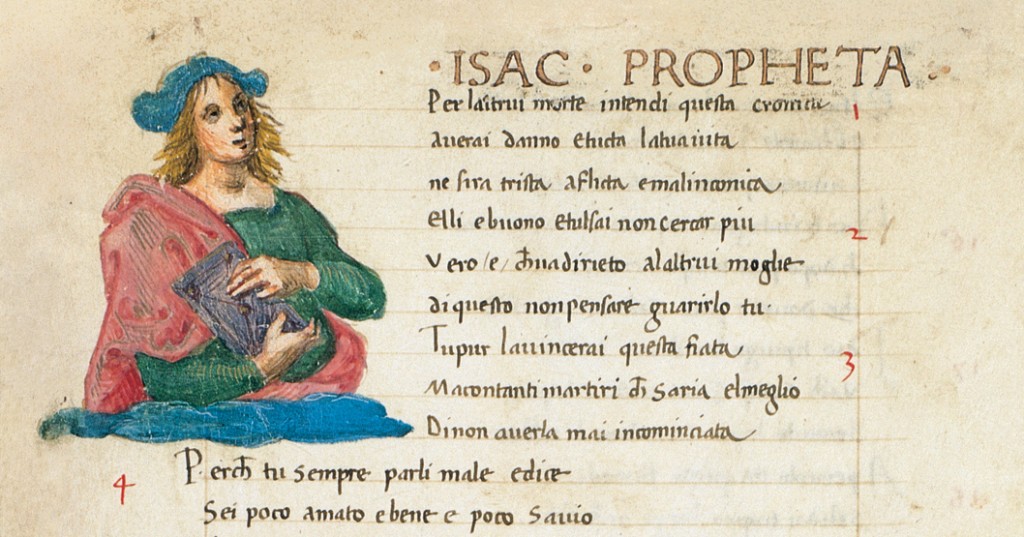 · ISAC · PROPHETA ·
Per laltrui morte intendi questa cronica 1
averai danno etucta latuaiuta
ne sira trista aflicta emalinconica
Elli ebuono etulsai noncercar piu 2
Vero/e/ chuadirieto alaltrui moglie
di questo nonpensare guarirlo tu·
Tupur lauincerai questa fiata 3
Macontanti martiri ch saria elmeglio
Dinon auerla mai incominciata
4 Perch tu sempre parli male edice
Sei poco amato ebene e poco Savio